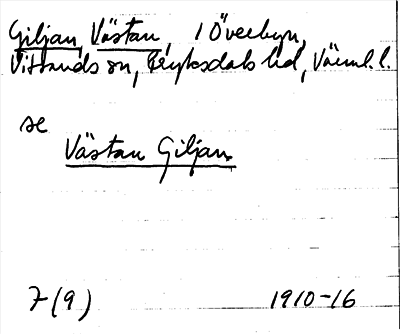 Giljan, Västan, i Överbyn,
Vitsands sn, Fryksdals hd, Värml. l.
se
Västan Giljan
7(9) 1910-16